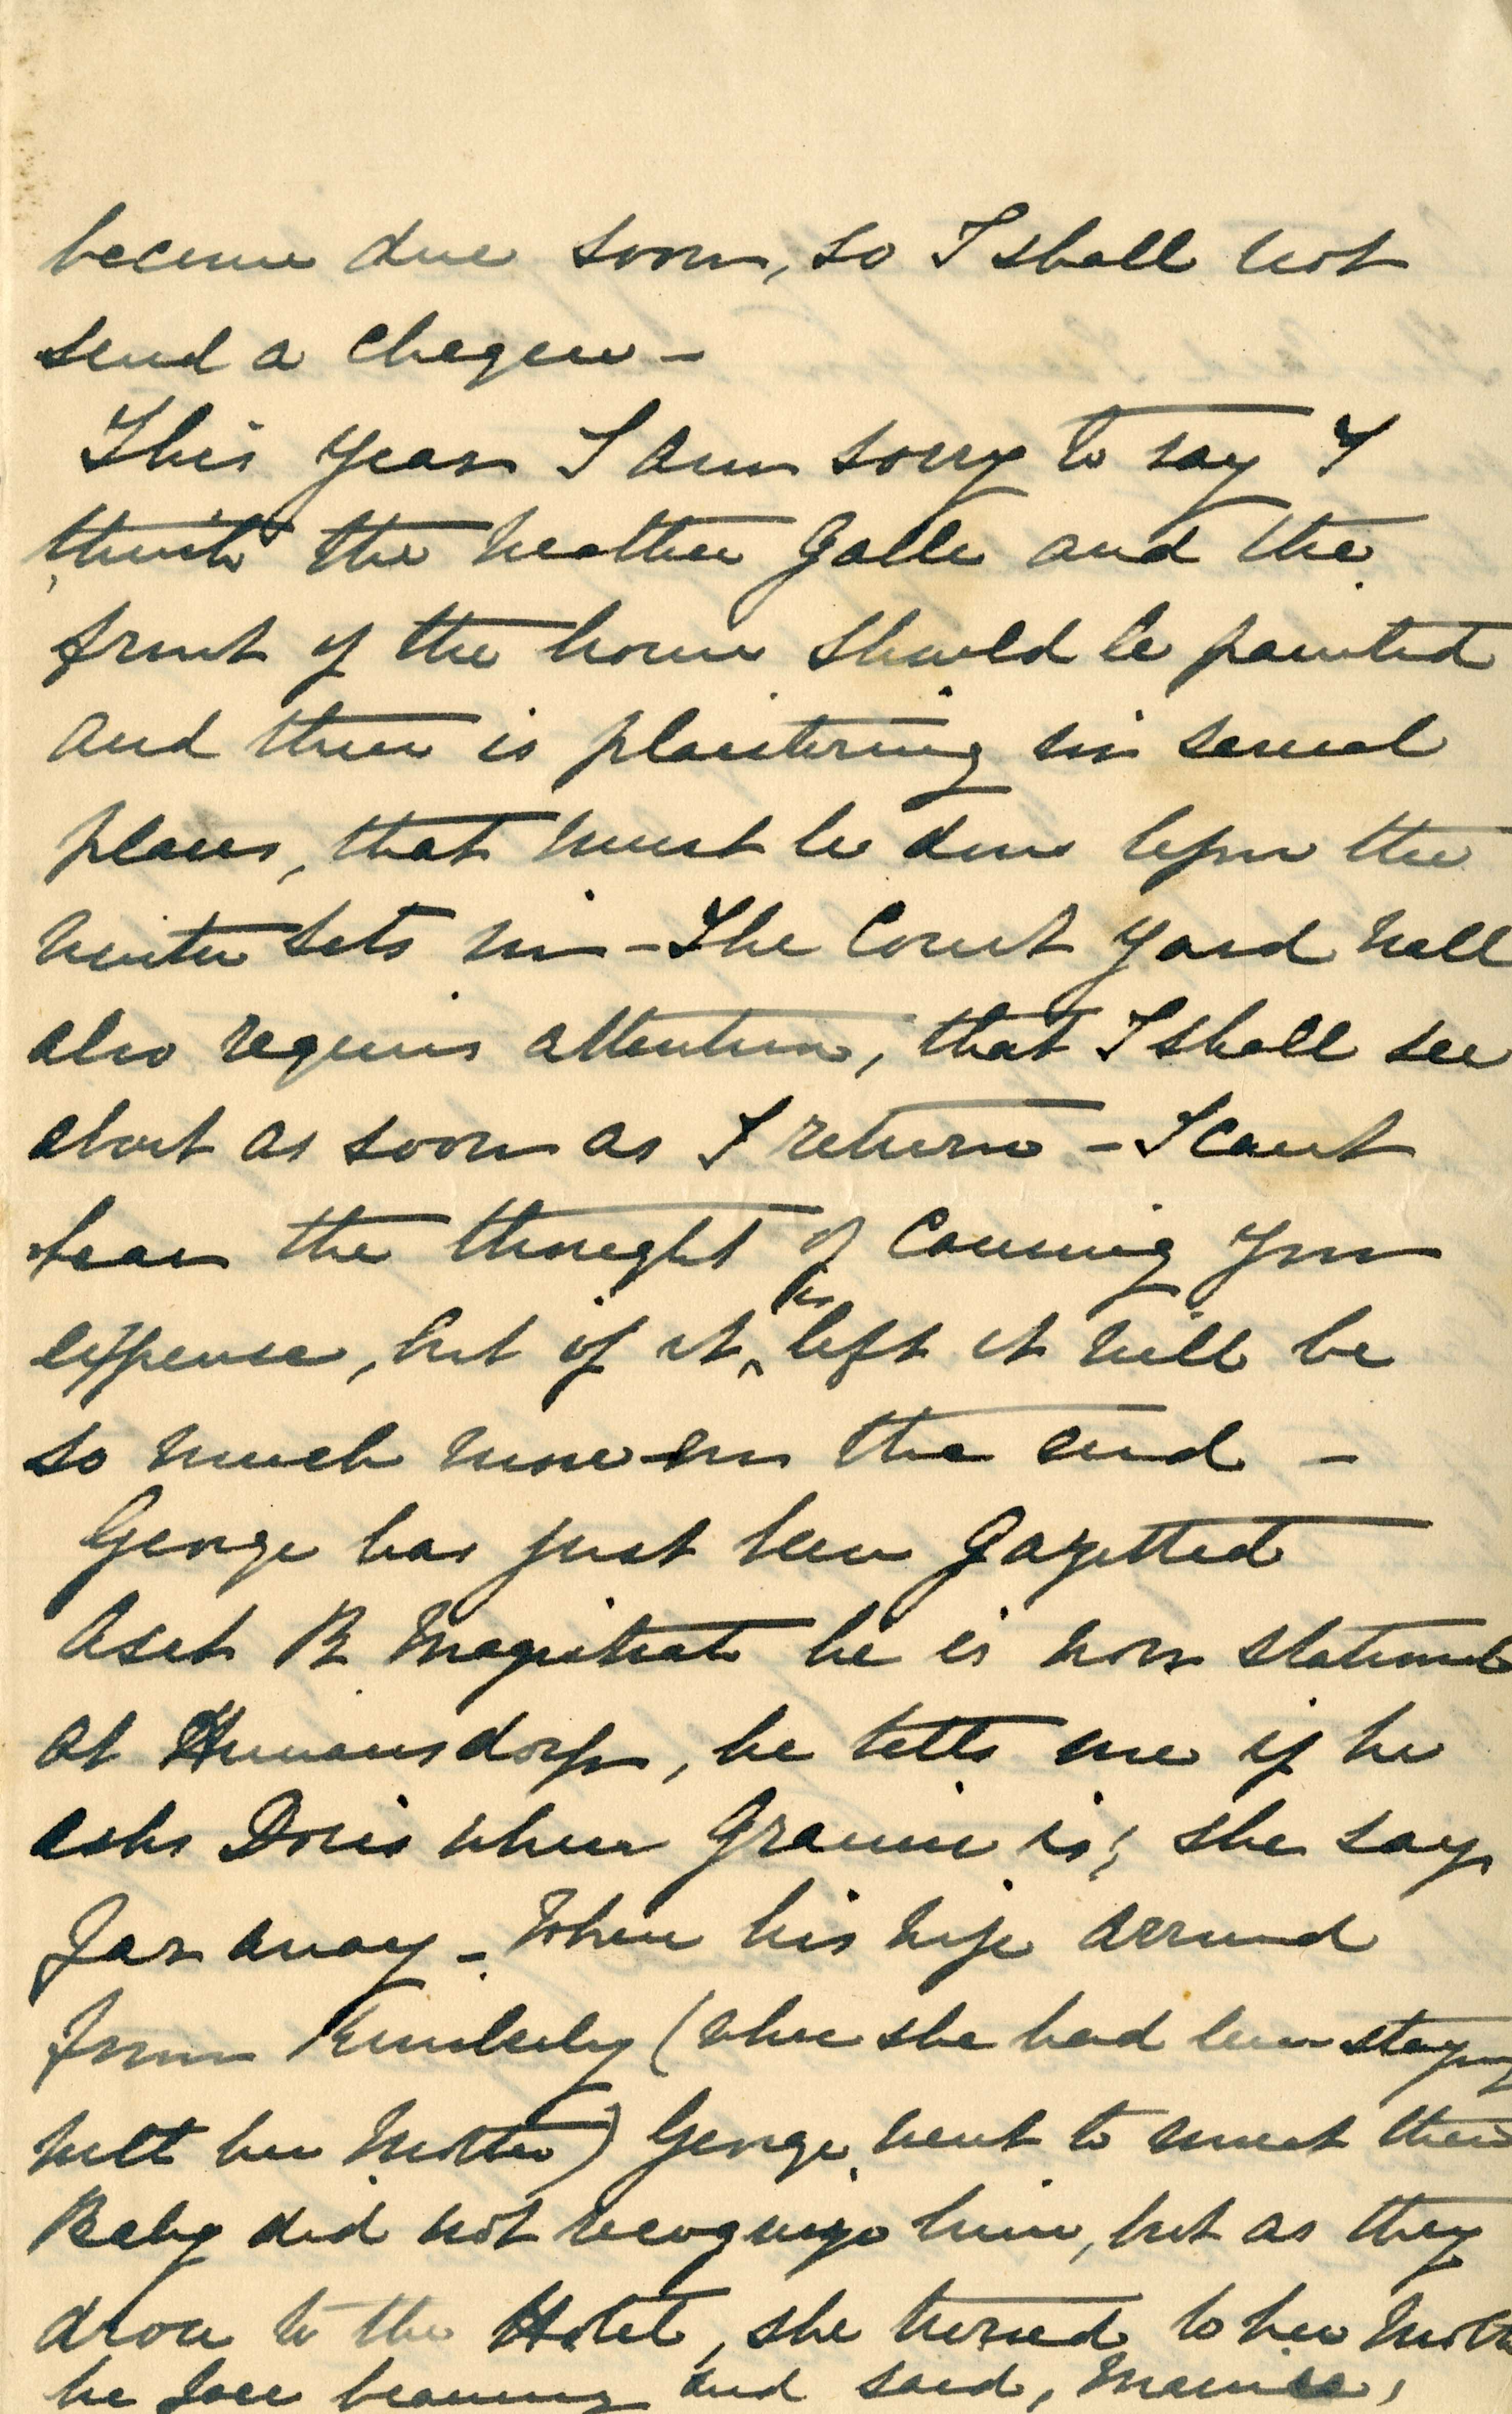 become due soon, so I shall not
send a cheque –
This year I am sorry to say I
think the weather Galle and the
front of the house should be painted
and there is plaistering in several
places, that must be done before the
winter sets in – The Court yard wall
also requires attention, that I shall see
about as soon as I return – I cant
bear the thought of causing you
expense, but if it is left it will be
so much more in the end –
George has just been Gazetted
Asst R. Magistrate he is now stationed
at Humansdorp, he tells me if he
asks Doris where Grannie is, she says
far away – When his wife arrived
from Kimberley (where she had been staying
with her Mother) George went to meet them
Baby did not recognize him, but as they
drove to the Hotel, she turned to her Mother
he face beaming and said, Mamma,